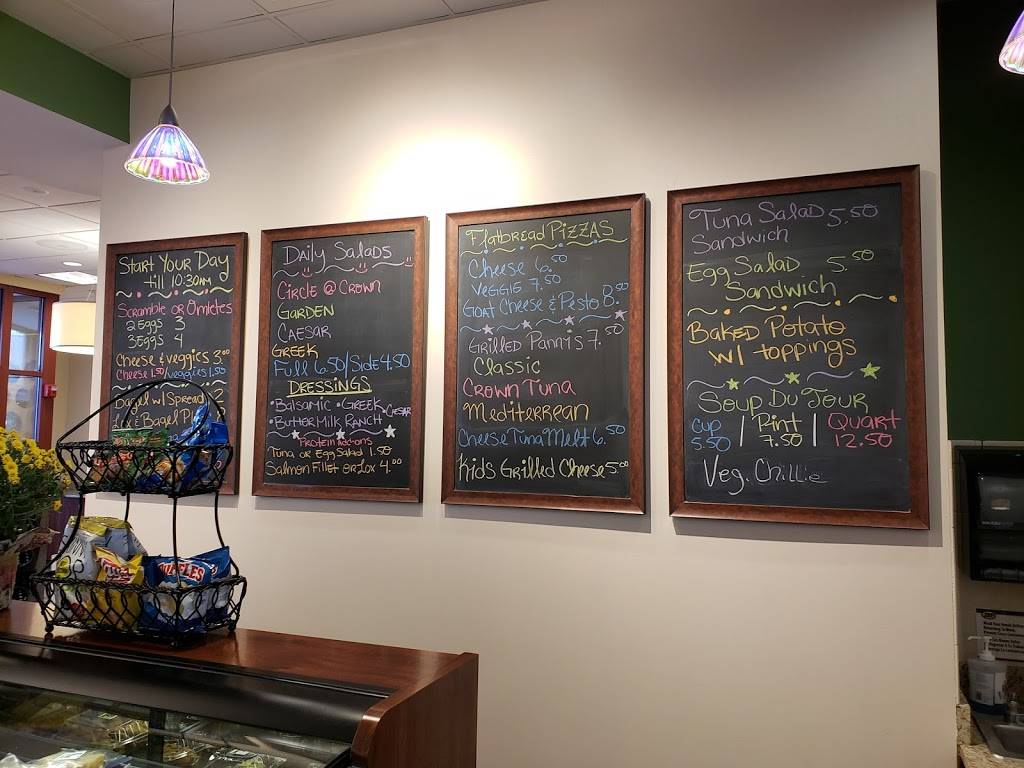 Start Your Day
till 10:30AM
Scramble or Omletes
2 Eggs 3
3 Eggs 4
Cheese & Veggies 3.00
Cheese 1.50/Veggies 1.50
Bagel w/ Spread 2
Lox & Bagel
Daily Salads
Circle @ Crown
Garden
Caesar
Greek
Full 6.50/Side 4.50
Dressings
• Balsamic • Greek • Caesar
• Butter Milk Ranch
Protein add-ons
Tuna or Egg Salad 1.50
Salmon Fillet or Lox 4.00
Flatbread Pizzas
Cheese 6.50
Veggie 7.50
Goat Cheese & Pesto 8.00
Grilled Panni's 7.50
Classic
Crown Tuna
Mediterrean
Cheese Tuna Melt 6.50
Kids Grilled Cheese 5.00
Tuna Salad 5.50
Sandwich
Egg Salad 5.50
Sandwich
Baked Potato
w/ toppings
Soup Du Jour
Cup | Pint | Quart
5.50 7.50 12.50
Veg. Chillie
RUFFLES